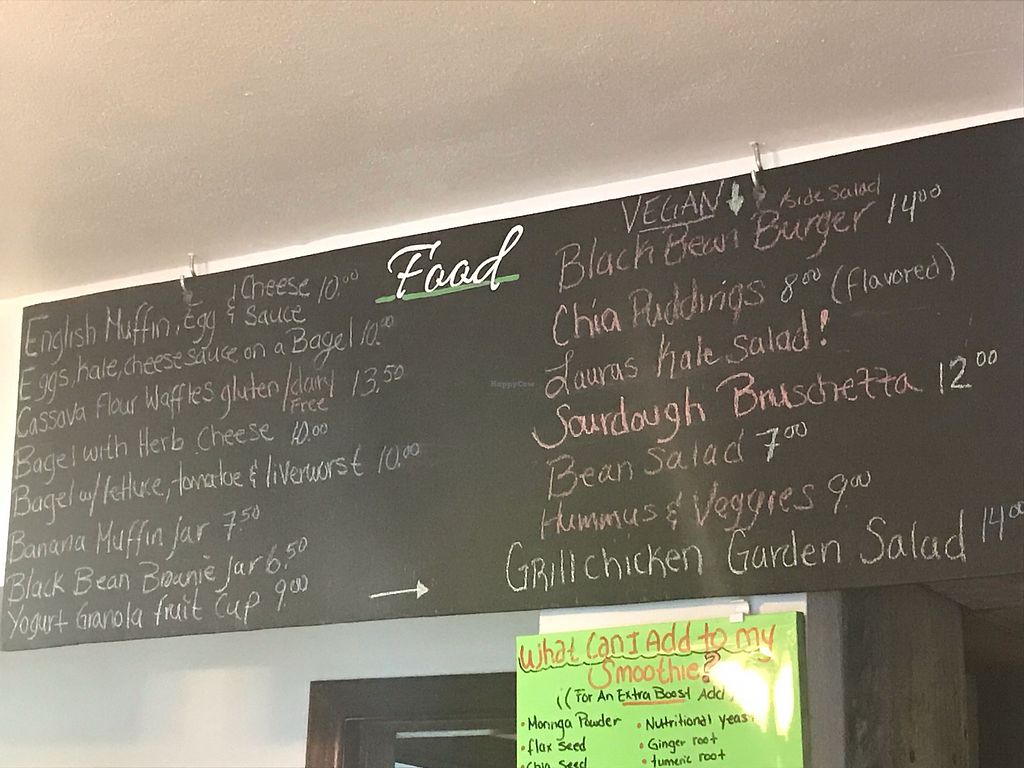 Food
English Muffin, Egg & Cheese Sauce 10.00
Eggs, kale, cheese sauce on a Bagel 10.00
Cassava Flour Waffles gluten/dairy Free 13.50
Bagel with Herb Cheese 10.00
Bagel w/ lettuce, tomatoe & liverwurst 10.00
Banana Muffin Jar 7.50
Black Bean Brownie Jar 6.50
Yogurt Granola fruit Cup 9.00
→
VEGAN ↓
Black Bean Burger /side Salad 14.00
Chia Puddings 8.00 (flavored)
Lauras kale Salad!
Sourdough Bruschetta 12.00
Bean Salad 7.00
Hummus & Veggies 9.00
Grill chicken Garden Salad 14.00
What Can I Add to my
Smoothie?
((For An Extra Boost Add
• Moringa Powder
• flax seed
• Chia Seed
• Nutritional yeast
• Ginger root
• tumeric root
HappyCow